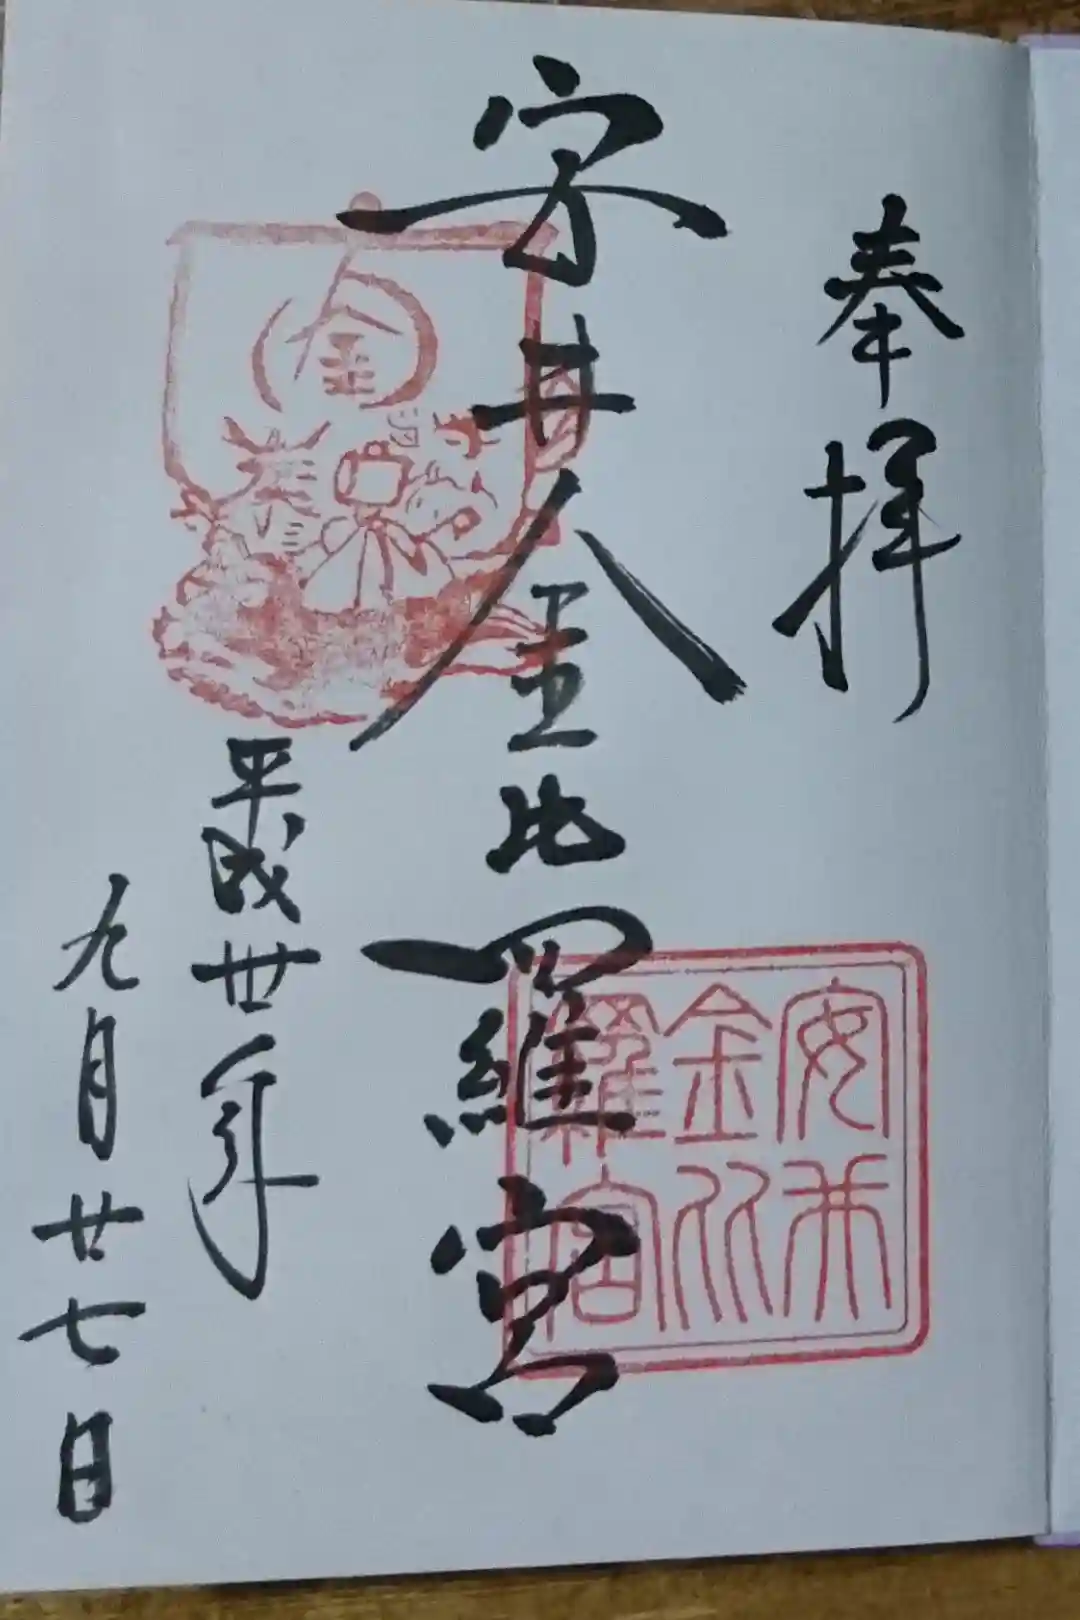 奉拝
安井金比羅宮
平成廿年
九月廿七日
安井
金比
羅宮
金